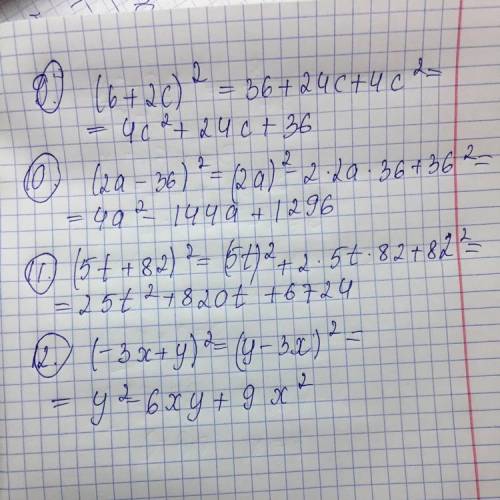 9. (6+2c)² = 36+24c+4c² =
= 4c²+24c+36
10. (2a-36)² = (2a)² - 2·2a·36+36² =
= 4a² - 144a + 1296
11. (5t+82)² = (5t)² + 2·5t·82+82² =
= 25t² + 820t + 6724
12. (-3x+y)² = (y-3x)² =
= y² - 6xy + 9x²